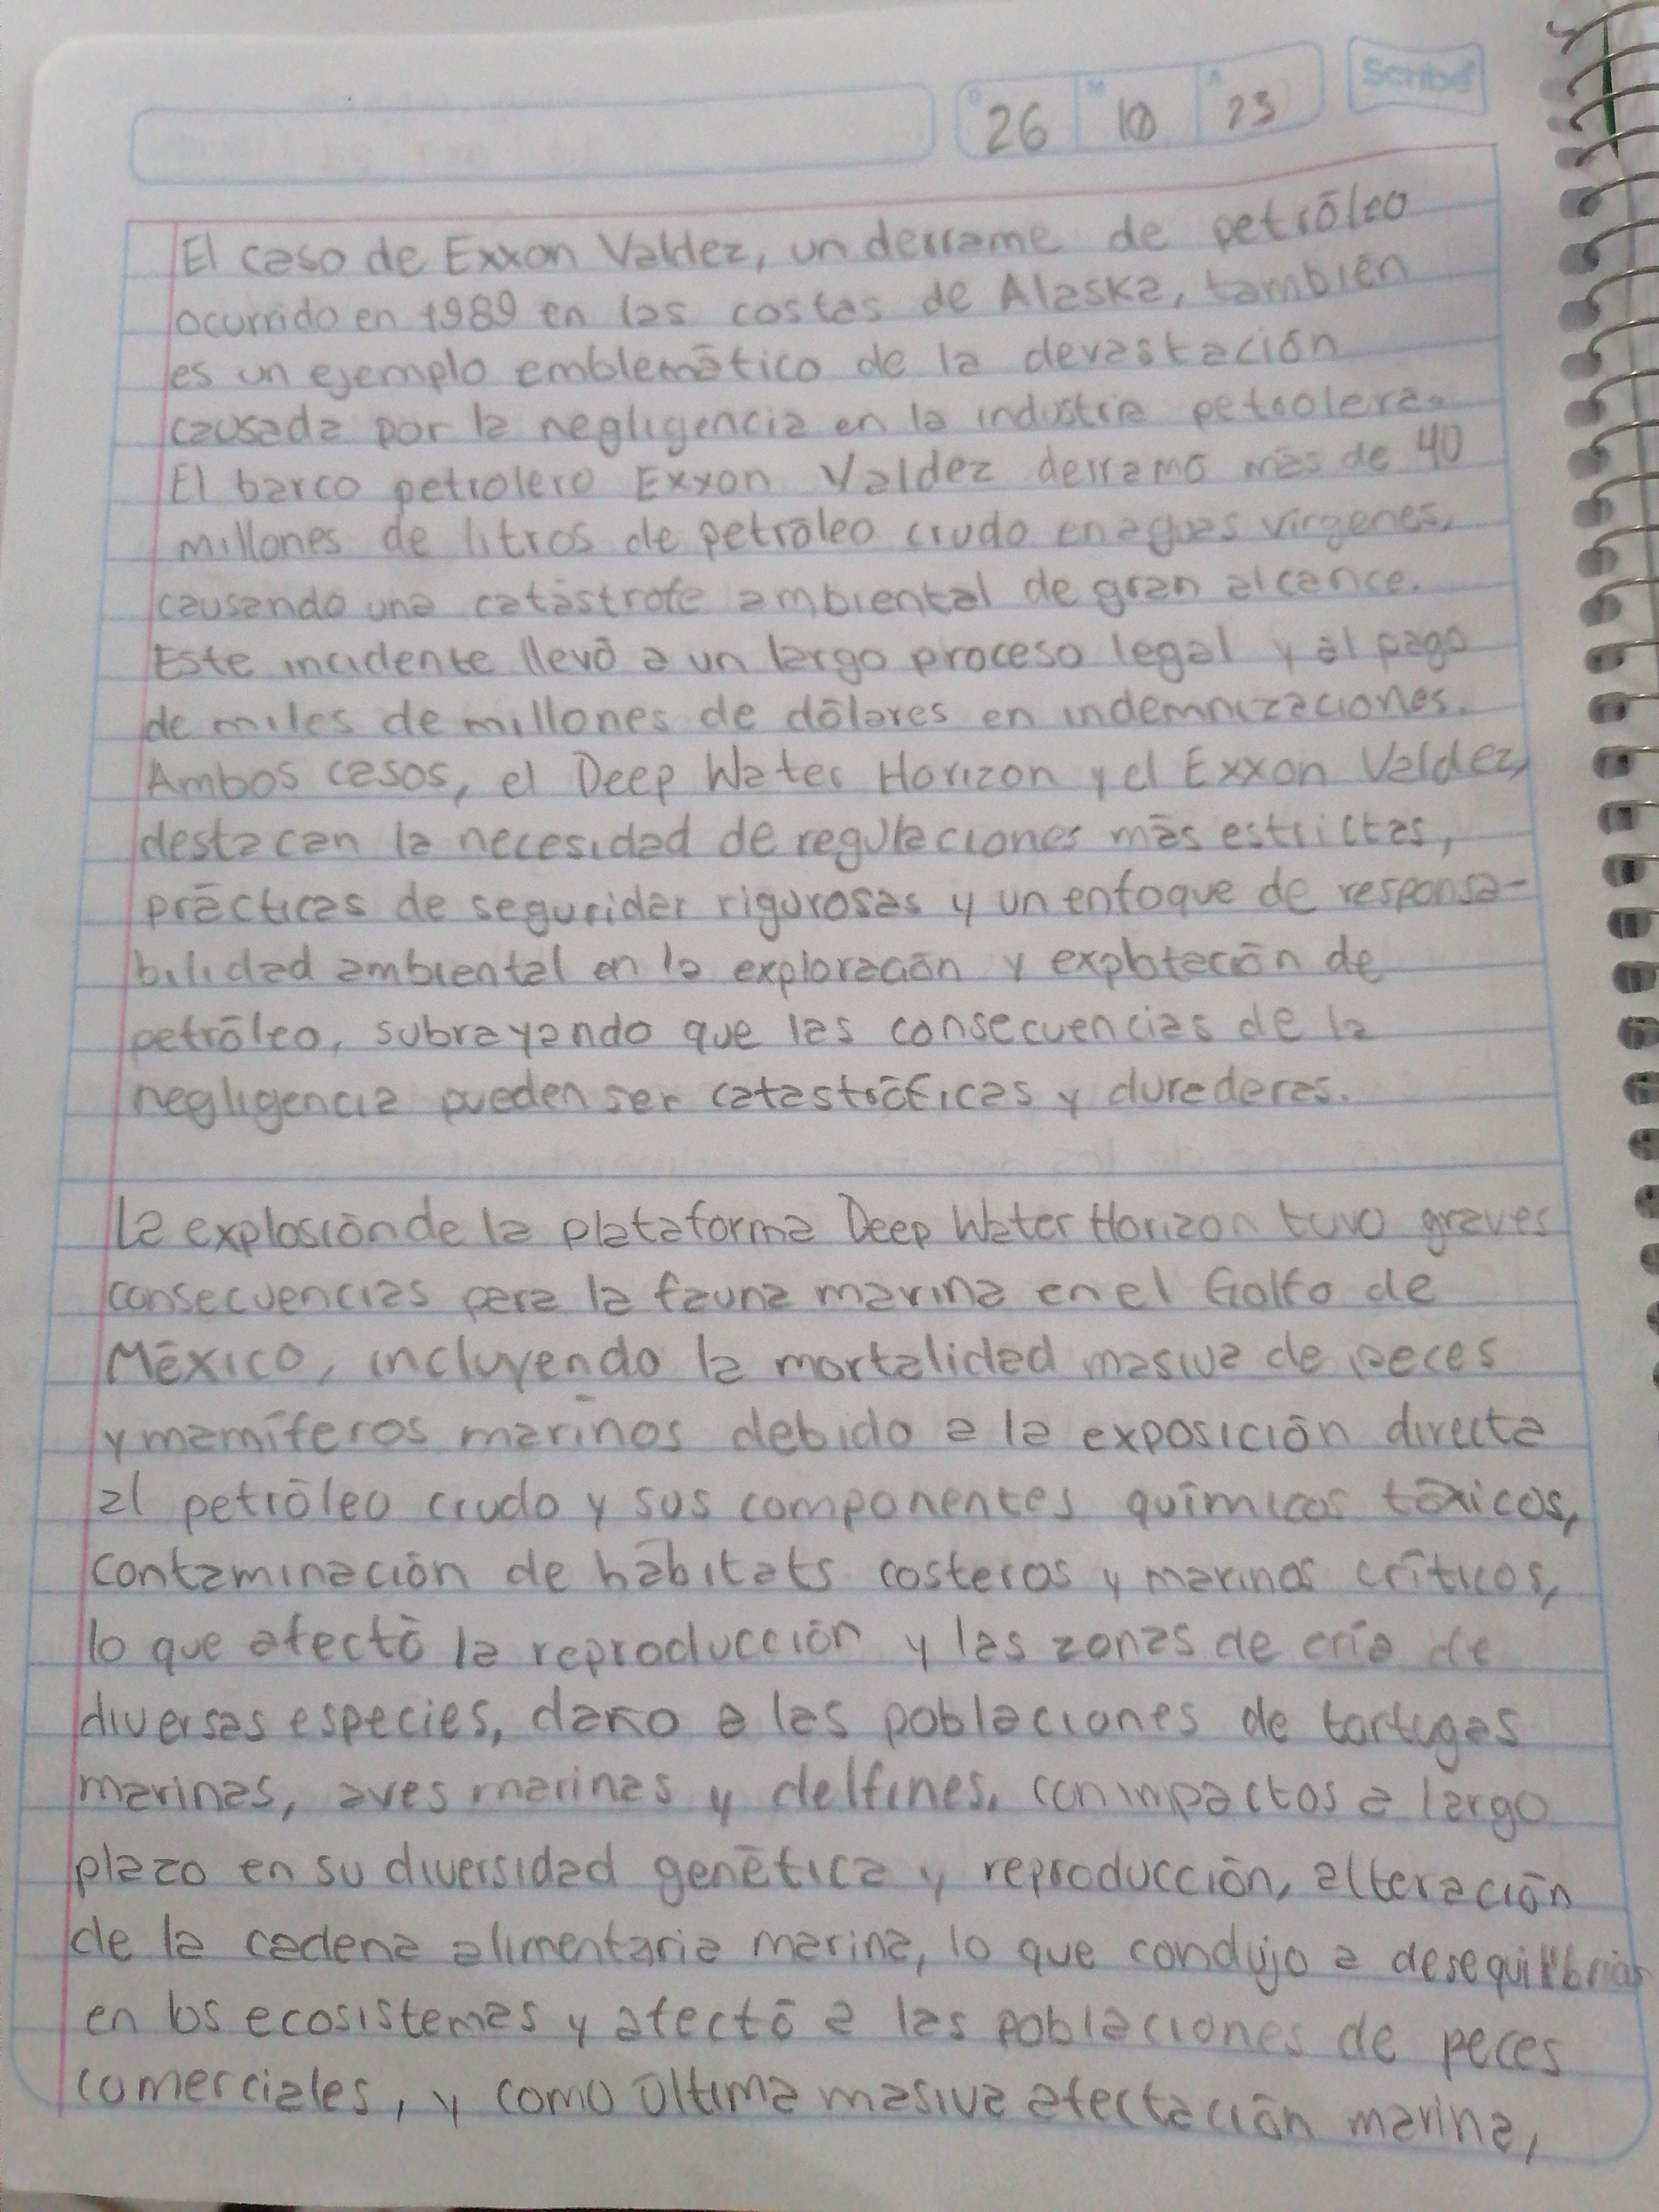 D 26 M 10 A 23 Scribe
El caso de Exxon Valdez, un derrame de petróleo
ocurrido en 1989 en las costas de Alaska, también
es un ejemplo emblemático de la devastación
causada por la negligencia en la industria petrolera.
El barco petrolero Exxon Valdez derramó más de 40
millones de litros de petróleo crudo en aguas vírgenes,
causando una catástrofe ambiental de gran alcance.
Este incidente llevó a un largo proceso legal y al pago
de miles de millones de dólares en indemnizaciones.
Ambos casos, el Deep Water Horizon y el Exxon Valdez,
destacan la necesidad de regulaciones más estrictas,
prácticas de seguridar rigurosas y un enfoque de responsa-
bilidad ambiental en la exploración y explotación de
petróleo, subrayando que las consecuencias de la
negligencia pueden ser catastróficas y duraderas.
La explosión de la plataforma Deep Water Horizon tuvo graves
consecuencias para la fauna marina en el Golfo de
México, incluyendo la mortalidad masiva de peces
y mamíferos marinos debido a la exposición directa
al petróleo crudo y sus componentes químicos tóxicos,
contaminación de hábitats costeros y marinos críticos,
lo que afectó la reproducción y las zonas de cría de
diversas especies, daño a las poblaciones de tortugas
marinas, aves marinas y delfines, con impactos a largo
plazo en su diversidad genética y reproducción, alteración
de la cadena alimentaria marina, lo que condujo a desequilibrios
en los ecosistemas y afectó a las poblaciones de peces
comerciales, y como última masiva afectación marina,